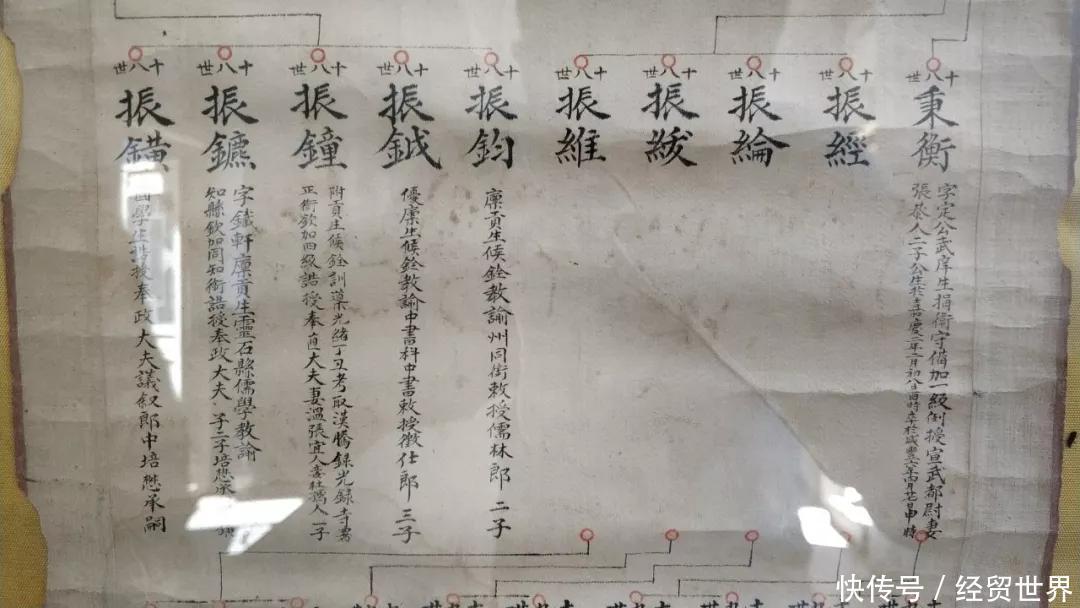 十八世
秉衡
字定公武庠生捐衛守備加一級例授宣武都尉妻
張恭人二子公生於嘉慶二年二月初八日酉時卒於咸豐六年四月廿
時
十八世
振經
十八世
振綸
十八世
振紱
十八世
振維
十八世
振鈞
廩貢生候銓教諭州同銜敕授儒林郎 二子
十八世
振鉞
優廩生候銓教諭中書科中書敕授徵仕郎 三子
十八世
振鐘
附貢生候銓訓導光緒丁丑考取漢謄錄光錄寺署
正銜欽加四級誥授奉直大夫妻溫張宜人妾杜孺人一子
十八世
振鑣
字鐵軒廩貢生靈石縣儒學教諭
知縣欽加同知銜誥授奉政大夫 子三子培懋承
十八世
振鐄
學生誥授奉政大夫議叙郎中培懋承嗣
快传号 / 经贸世界